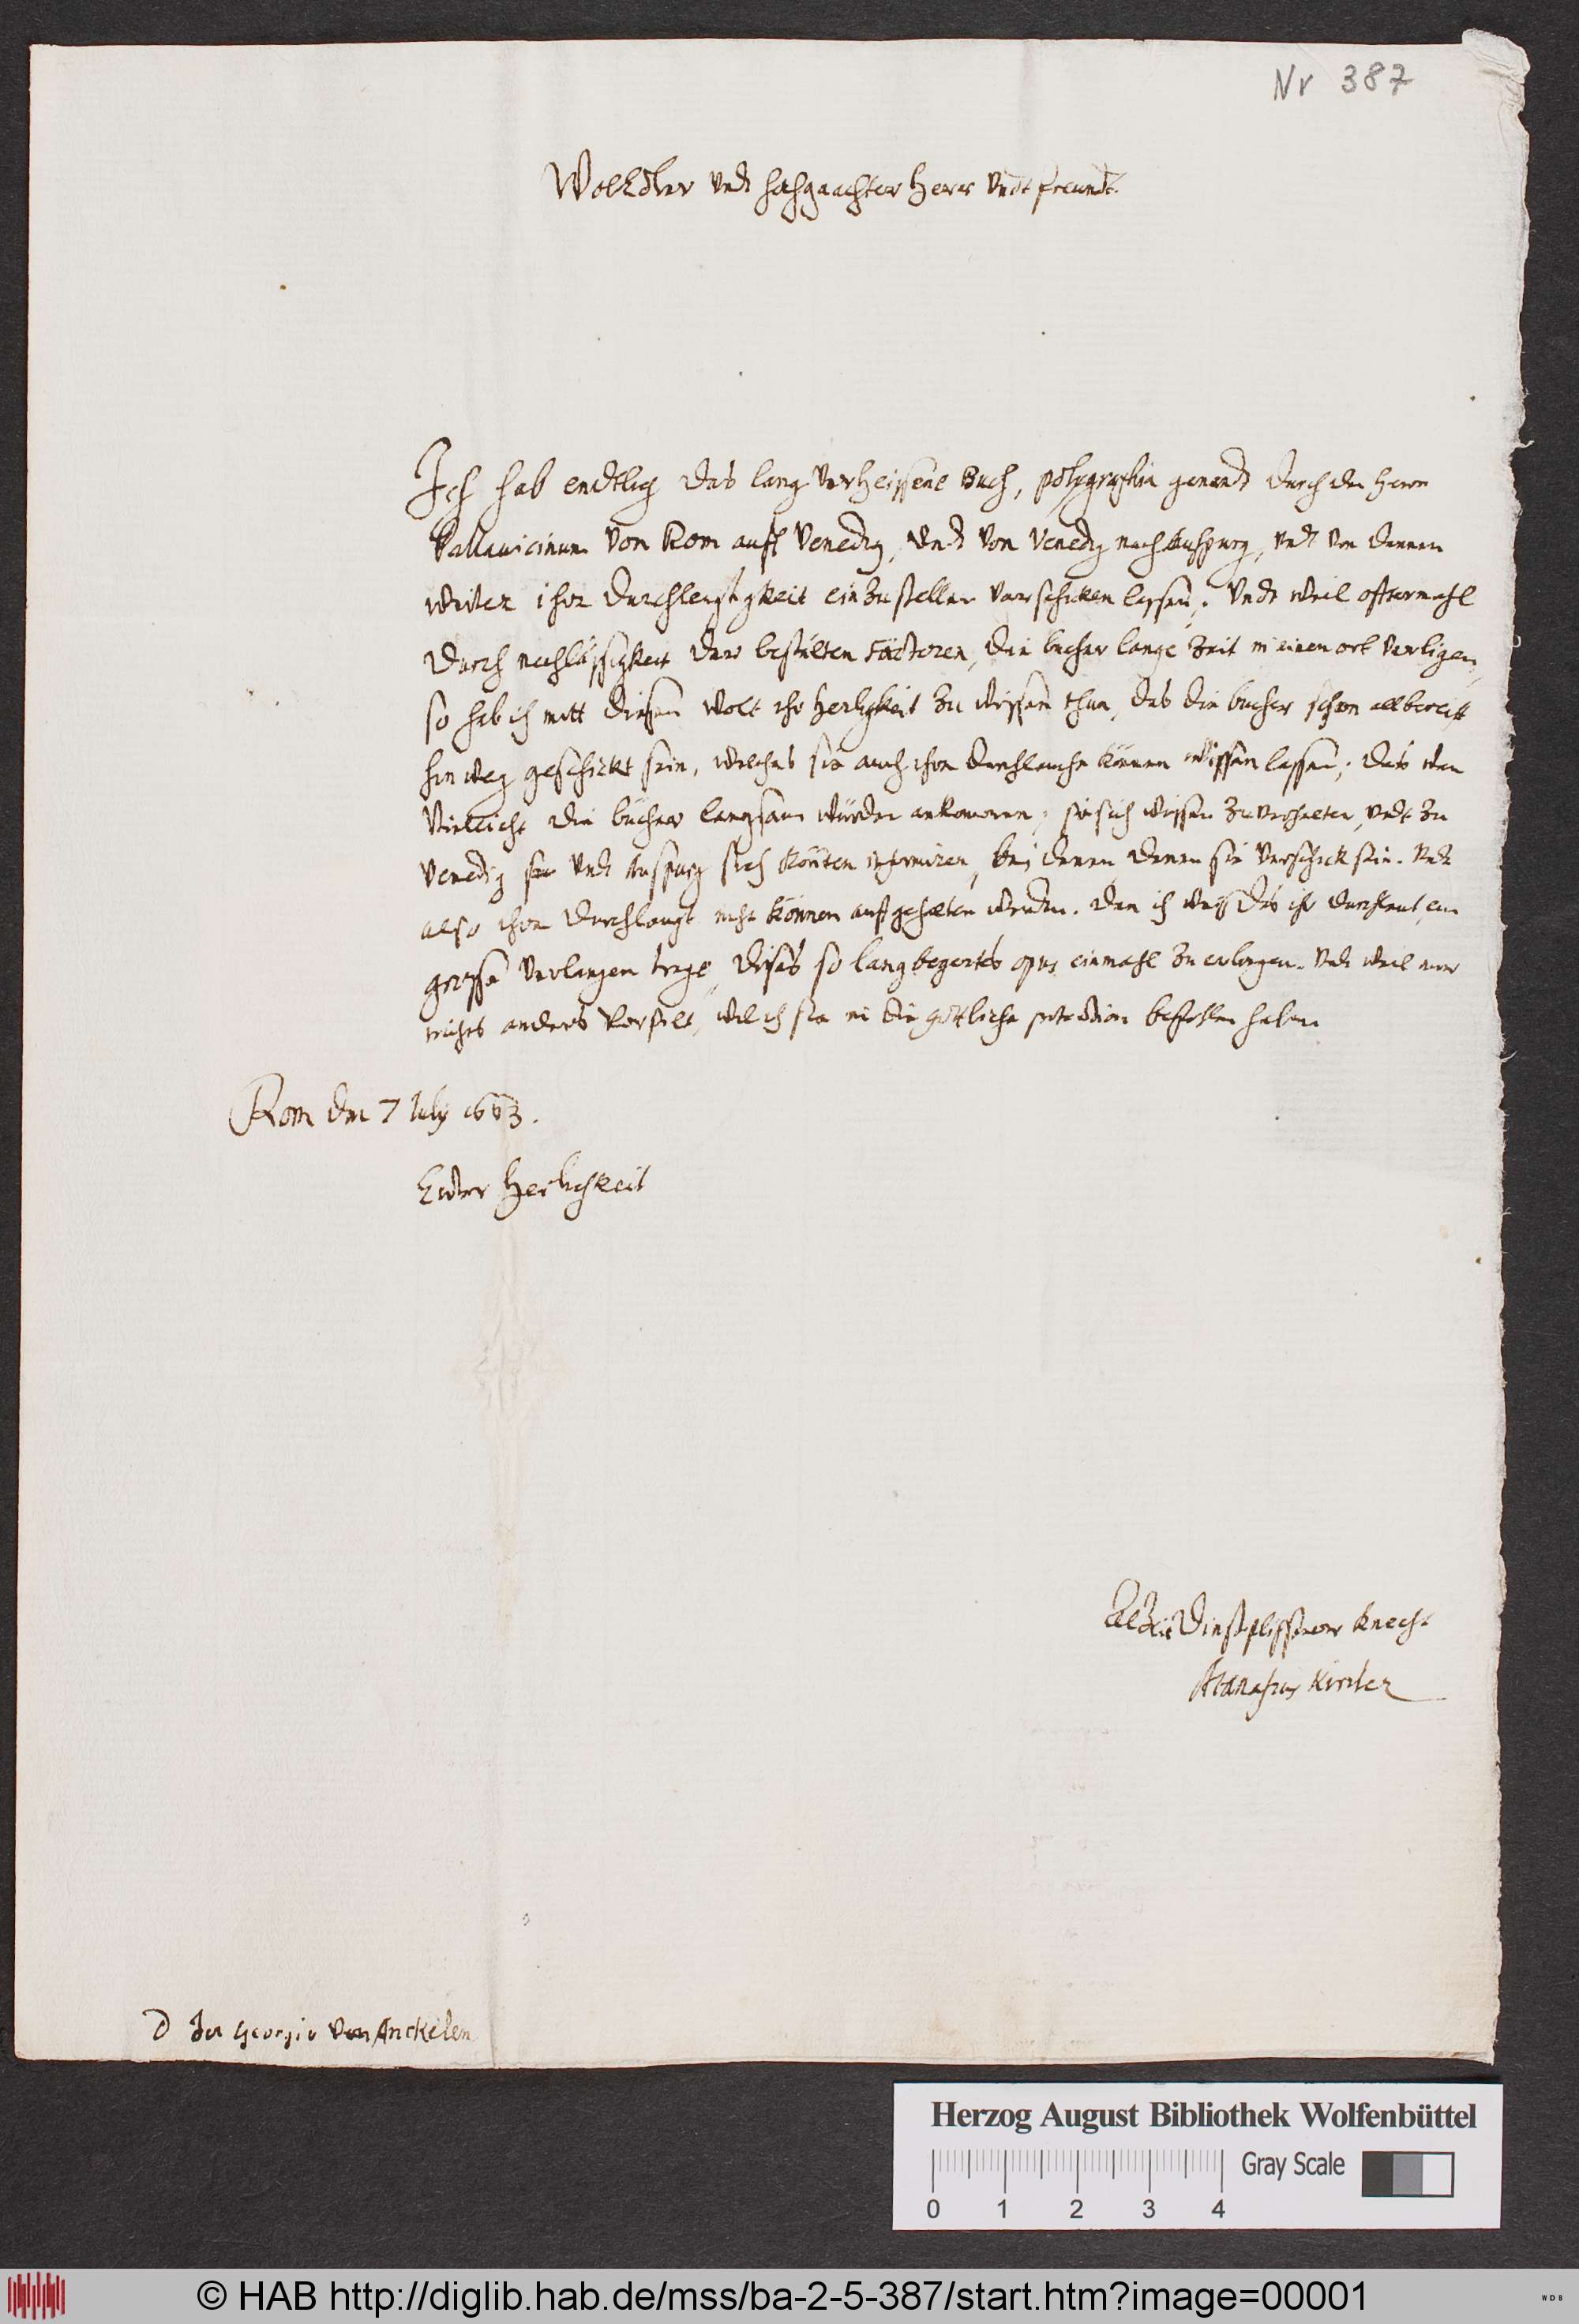 Nr 387
WolEdler undt hochgeachter Herr undt freundt
Ich hab endtlig das lang verheissene Buch, polygraphia genandt durch den Herrn
Pallavicinum von Rom auff Venedig, undt von Venedig nach Auspurg, undt von dannen
weiter ihr durchleigtigkeit einzustellen verschicken lassen; undt weil offtermahl
durch nachlässigkeit der bestälten factoren, die bucher lange zeit in einen ort verligen,
so hab ich mitt diesen wolt ihr herligkeit zu wissen thun, das die bucher schon allbereit
hinweg geschickt sein, welches sie auch ihr durchlaucht können wissen lassen; das wan
villeicht die bücher langsam würden ankommen, sie sich wissen zu verhalten, undt zu
Venedig undt Auspurg sich könten informiren, bei denen, denen sie verschickt sein. undt
also ihr durchlaugt nicht können auffgehalten werden. dan ich weis das ihr durchlaut ein
grosse verlangen trage, dises so lang begertes opus einmahl zu erlangen. undt weil mir
nichts anders vorfält, wil ich sie in die göttliche protection befohlen haben
Rom den 7 July 1663.
Euwer Herlichkeit
Alzeit dinstflissiger Knecht
Atanasius Kircher
D Joa Georgio von Anckelen
Herzog August Bibliothek Wolfenbüttel
Gray Scale
0 1 2 3 4
© HAB http://diglib.hab.de/mss/ba-2-5-387/start.htm?image=00001
WDB